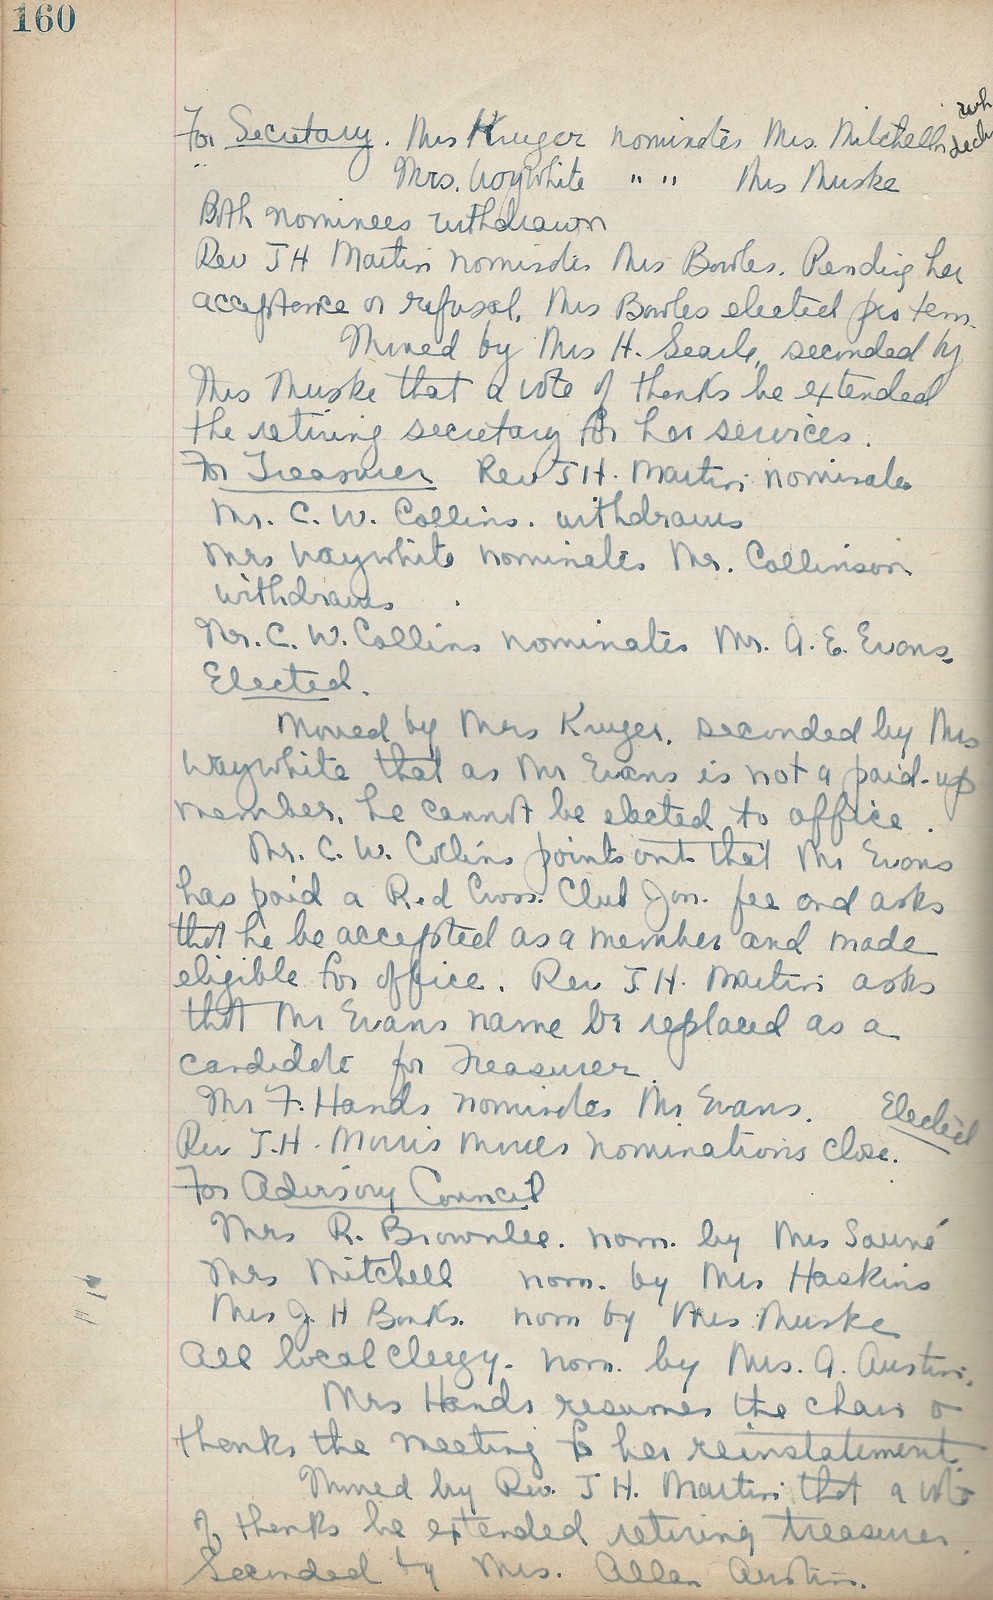 160
For Secretary. Mrs Kruger nominates Mrs. Mitchell
" Mrs. Waywhite " " Mrs Muske
Both nominees withdrawn
Rev J H Martin nominates Mrs Bowles. Pending her
acceptance or refusal, Mrs Bowles elected pro tem.
Moved by Mrs H. Searle, seconded by
Mrs Muske that a vote of thanks be extended
the retiring secretary for her services.
For Treasurer Rev J H. Martin nominates
Mr. C. W. Collins. withdraws
Mrs Waywhite nominates Mr. Collinson.
withdraws.
Mr. C. W. Collins nominates Mr. A. E. Evans.
Elected.
Moved by Mrs Kruger, seconded by Mrs
Waywhite that as Mr Evans is not a paid-up
member, he cannot be elected to office.
Mr. C. W. Collins points out that Mr Evans
has paid a Red Cross Club fee and asks
that he be accepted as a member and made
eligible for office. Rev J. H. Martin asks
that Mr Evans name be replaced as a
candidate for Treasurer.
Mr F. Hands nominates Mr Evans. Elected
Rev J.H. moves nominations close.
For Advisory Council
Mrs R. Brownlee. nom. by Mrs Sauné
Mrs Mitchell nom. by Mrs Haskins
Mrs J. H Banks. nom by Mrs Muske
All local clergy. nom. by Mrs. A. Austin.
Mrs Hands resumes the chair &
thanks the meeting for her reinstatement.
Moved by Rev. J H. Martin that a vote
of thanks be extended retiring treasurer.
Seconded by Mrs. Allan Austin.